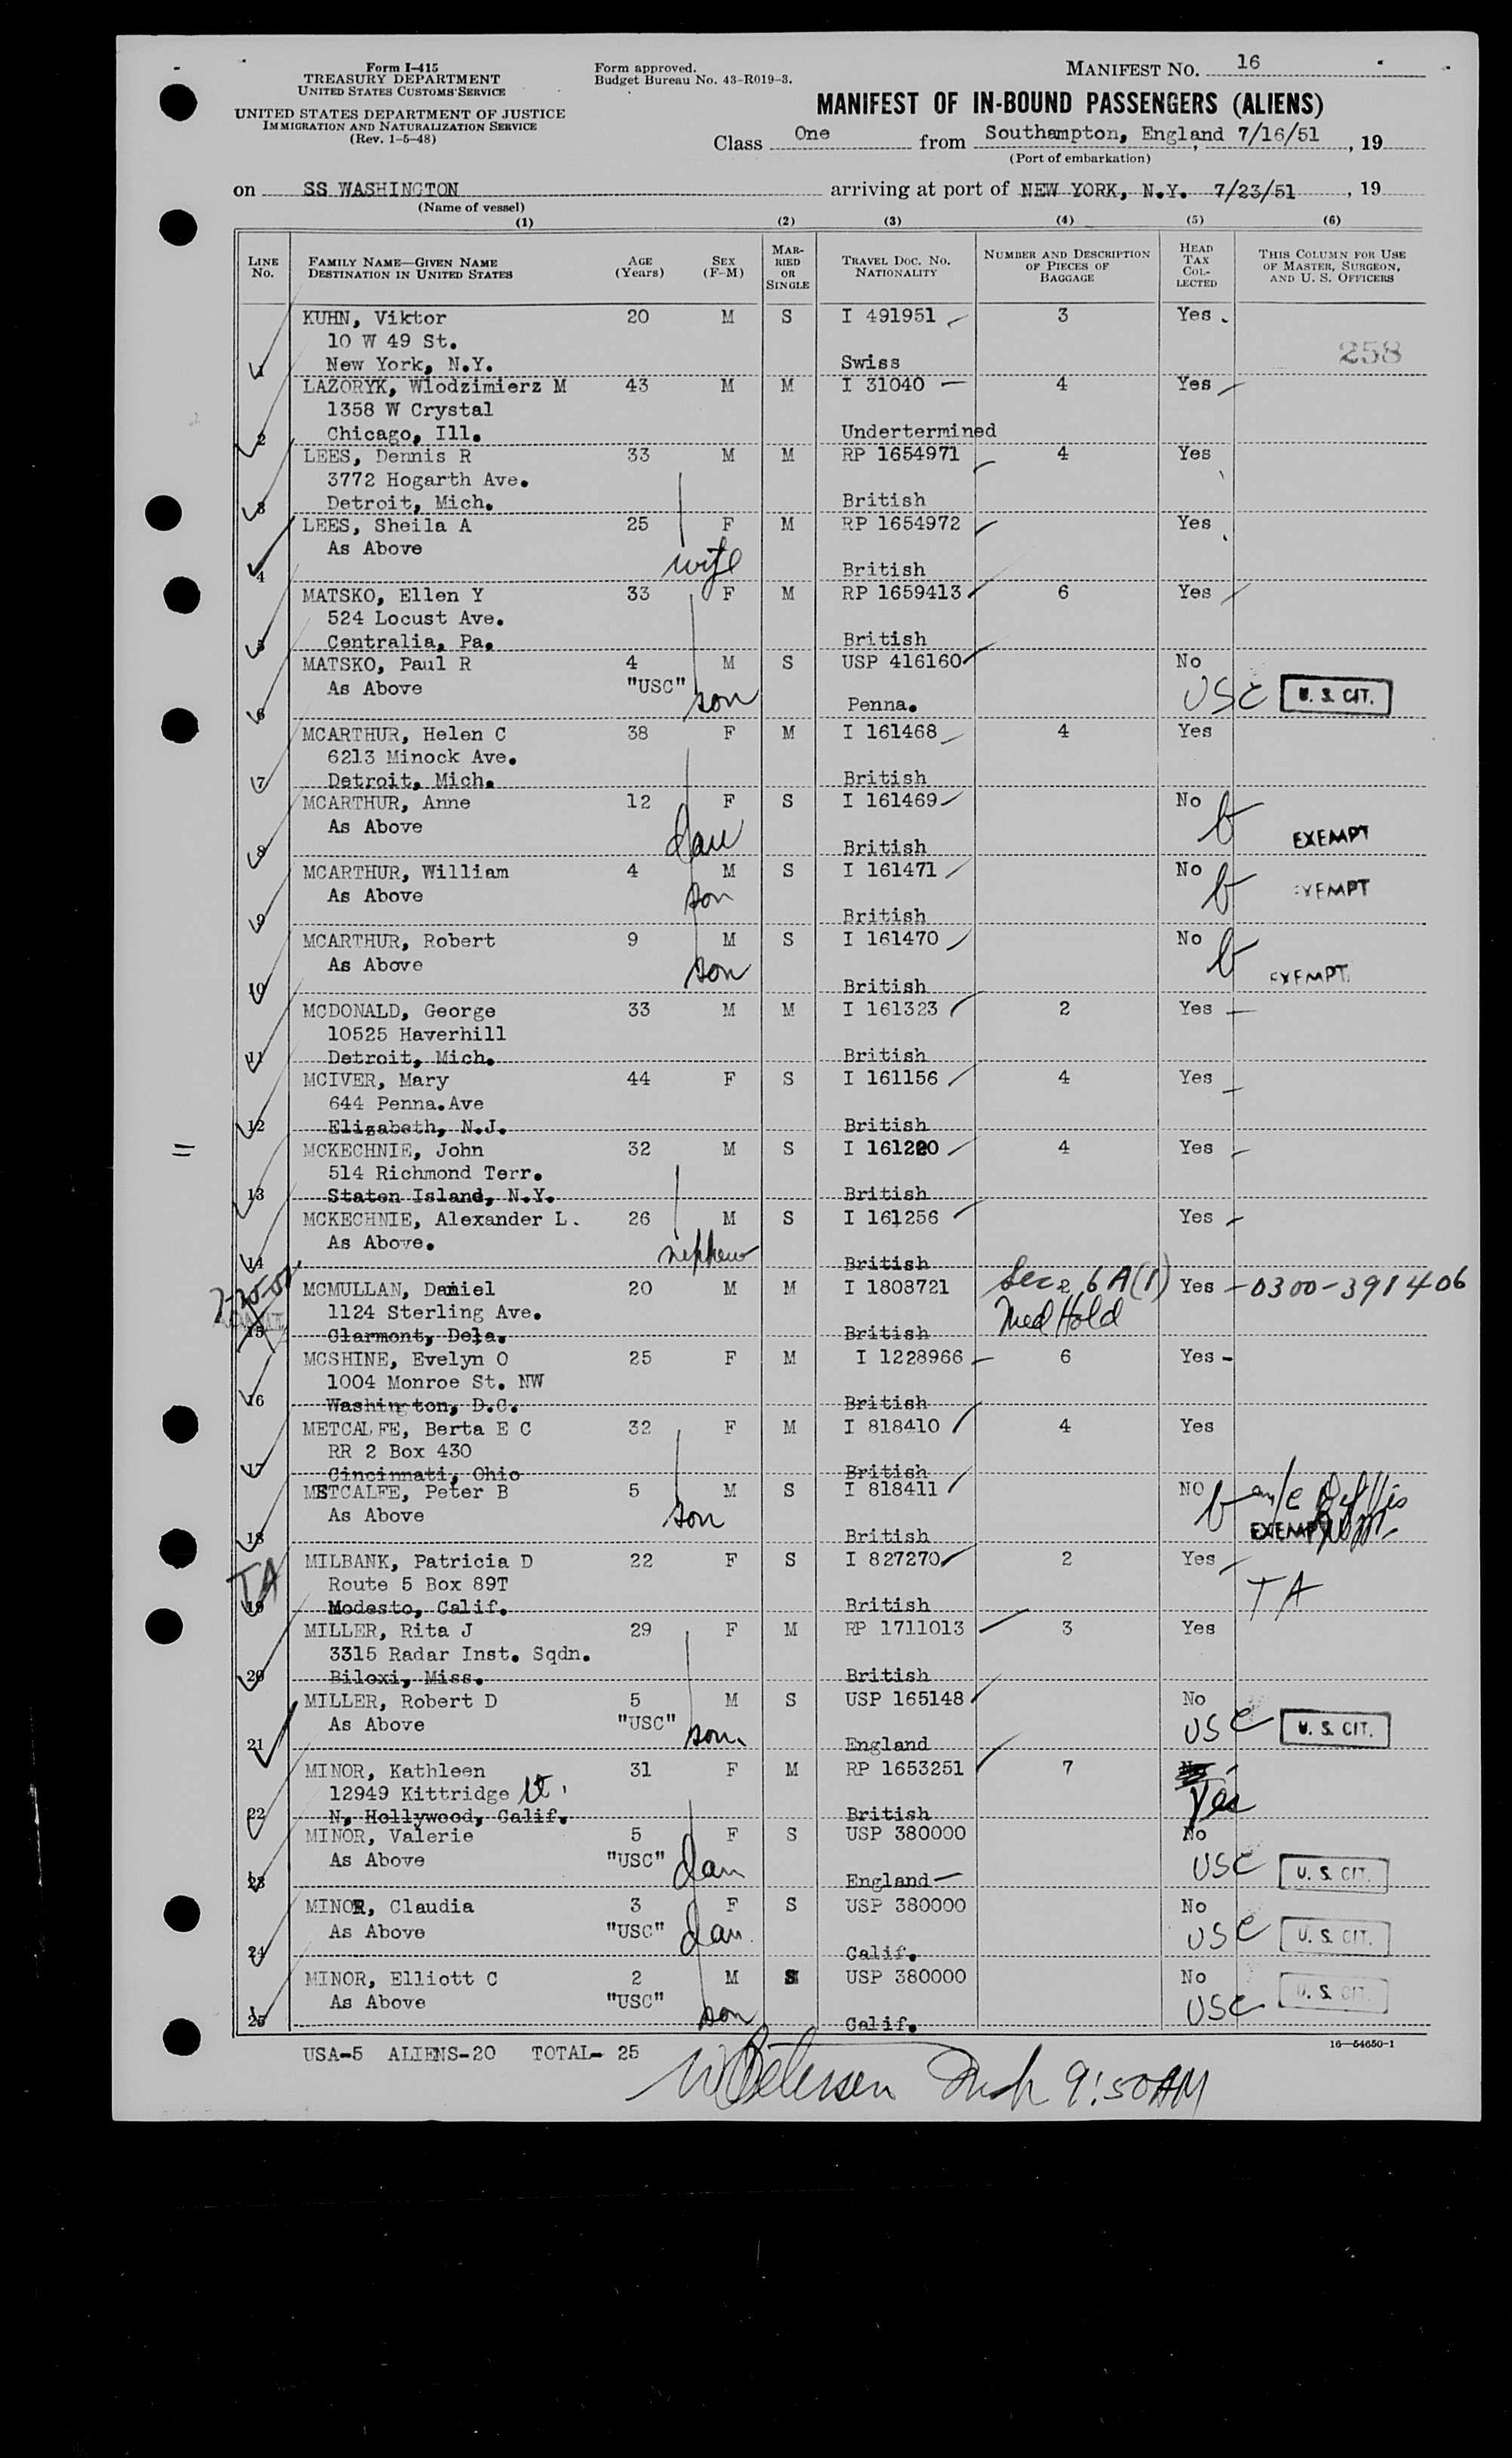 Form I-415
TREASURY DEPARTMENT
UNITED STATES CUSTOMS SERVICE
UNITED STATES DEPARTMENT OF JUSTICE
IMMIGRATION AND NATURALIZATION SERVICE
(Rev. 1-5-48)
Form approved.
Budget Bureau No. 43-R019-3.
MANIFEST NO. 16
MANIFEST OF IN-BOUND PASSENGERS (ALIENS)
Class One from Southampton, England 7/16/51, 19
(Port of embarkation)
on SS WASHINGTON arriving at port of NEW YORK, N.Y. 7/23/51, 19
(Name of vessel)
(1) (2) (3) (4) (5) (6)
LINE No. FAMILY NAME—GIVEN NAME DESTINATION IN UNITED STATES AGE (Years) SEX (F-M) MARRIED OR SINGLE TRAVEL DOC. NO. NATIONALITY NUMBER AND DESCRIPTION OF PIECES OF BAGGAGE HEAD TAX COLLECTED THIS COLUMN FOR USE OF MASTER, SURGEON, AND U. S. OFFICERS
KUHN, Viktor 20 M S I 491951 3 Yes
10 W 49 St. 258
1 New York, N.Y. Swiss
LAZORYK, Wlodzimierz M 43 M M I 31040 4 Yes
1358 W Crystal
2 Chicago, Ill. Undertermined
LEES, Dennis R 33 M M RP 1654971 4 Yes
3772 Hogarth Ave.
3 Detroit, Mich. British
LEES, Sheila A 25 F M RP 1654972 Yes
As Above wife
4 British
MATSKO, Ellen Y 33 F M RP 1659413 6 Yes
524 Locust Ave.
5 Centralia, Pa. British
MATSKO, Paul R 4 M S USP 416160 No
As Above "USC" son USC U. S. CIT.
6 Penna.
MCARTHUR, Helen C 38 F M I 161468 4 Yes
6213 Minock Ave.
7 Detroit, Mich. British
MCARTHUR, Anne 12 F S I 161469 No
As Above dau b EXEMPT
8 British
MCARTHUR, William 4 M S I 161471 No
As Above son b EXEMPT
9 British
MCARTHUR, Robert 9 M S I 161470 No
As Above son b EXEMPT
10 British
MCDONALD, George 33 M M I 161323 2 Yes
10525 Haverhill
11 Detroit, Mich. British
MCIVER, Mary 44 F S I 161156 4 Yes
644 Penna.Ave
12 Elizabeth, N.J. British
MCKECHNIE, John 32 M S I 161220 4 Yes
514 Richmond Terr.
13 Staten Island, N.Y. British
MCKECHNIE, Alexander L. 26 M S I 161256 Yes
As Above. nephew
14 British
MCMULLAN, Daniel 20 M M I 1808721 Sec 6A(1) Yes -0300-391406
1124 Sterling Ave. Med Hold
15 Clarmont, Dela. British
MCSHINE, Evelyn O 25 F M I 1228966 6 Yes
1004 Monroe St. NW
16 Washington, D.C. British
METCALFE, Berta E C 32 F M I 818410 4 Yes
RR 2 Box 430
17 Cincinnati, Ohio British
METCALFE, Peter B 5 M S I 818411 NO
As Above son b EXEMPT
18 British
TA MILBANK, Patricia D 22 F S I 827270 2 Yes
Route 5 Box 89T TA
19 Modesto, Calif. British
MILLER, Rita J 29 F M RP 1711013 3 Yes
3315 Radar Inst. Sqdn.
20 Biloxi, Miss. British
MILLER, Robert D 5 M S USP 165148 No
As Above "USC" son USC U. S. CIT.
21 England
MINOR, Kathleen 31 F M RP 1653251 7
12949 Kittridge St. Yes
22 N, Hollywood, Calif. British
MINOR, Valerie 5 F S USP 380000 No
As Above "USC" dau USC U. S. CIT.
23 England
MINOR, Claudia 3 F S USP 380000 No
As Above "USC" dau USC U. S. CIT.
24 Calif.
MINOR, Elliott C 2 M S USP 380000 No
As Above "USC" son USC U. S. CIT.
25 Calif.
USA-5 ALIENS-20 TOTAL- 25
16—54650-1
9:50AM